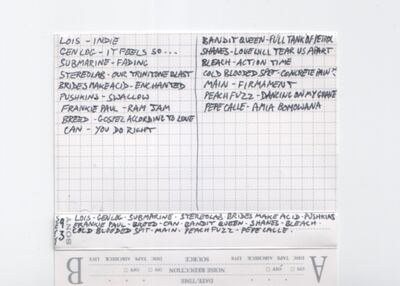 LOIS - INDIE
GENLOG - IT FEELS SO...
SUBMARINE - FADING
STEREOLAB - OUR TRINITONE BLAST
BRIDES MAKE ACID - ENCHANTED
PUSHKINS - SWALLOW
FRANKIE PAUL - RAM JAM
BREED - GOSPEL ACCORDING TO LOVE
CAN - YOU DO RIGHT
BANDIT QUEEN - FULL TANK OF PETROL
SHANES - LOVE WILL TEAR US APART
BLEACH - ACTION TIME
COLD BLOODED SPIT - CONCRETE PAIN?
MAIN - FIRMAMENT
PEACH FUZZ - DANCING ON MY GRAVE
PEPE CALLE - AMIA BOMOWANA
LOIS - GENLOG - SUBMARINE - STEREOLAB BRIDES MAKE ACID - PUSHKINS
FRANKIE PAUL - BREED - CAN - BANDIT QUEEN - SHANES - BLEACH -
COLD BLOODED SPIT - MAIN - PEACH FUZZ - PEPE CALLE.
A
DATE/TIME
NOISE REDUCTION
ON OFF
SOURCE
DISC TAPE AIRCHECK LIVE
B
ON OFF
DISC TAPE AIRCHECK LIVE